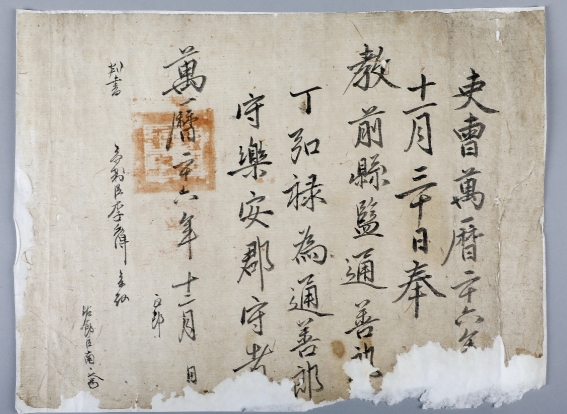 吏曹萬曆二十六年
十一月三十日奉
教前縣監通善
丁弘禄為通善郎
守樂安郡守者
萬曆二十六年十二月 日
判書
參判臣李
正郎